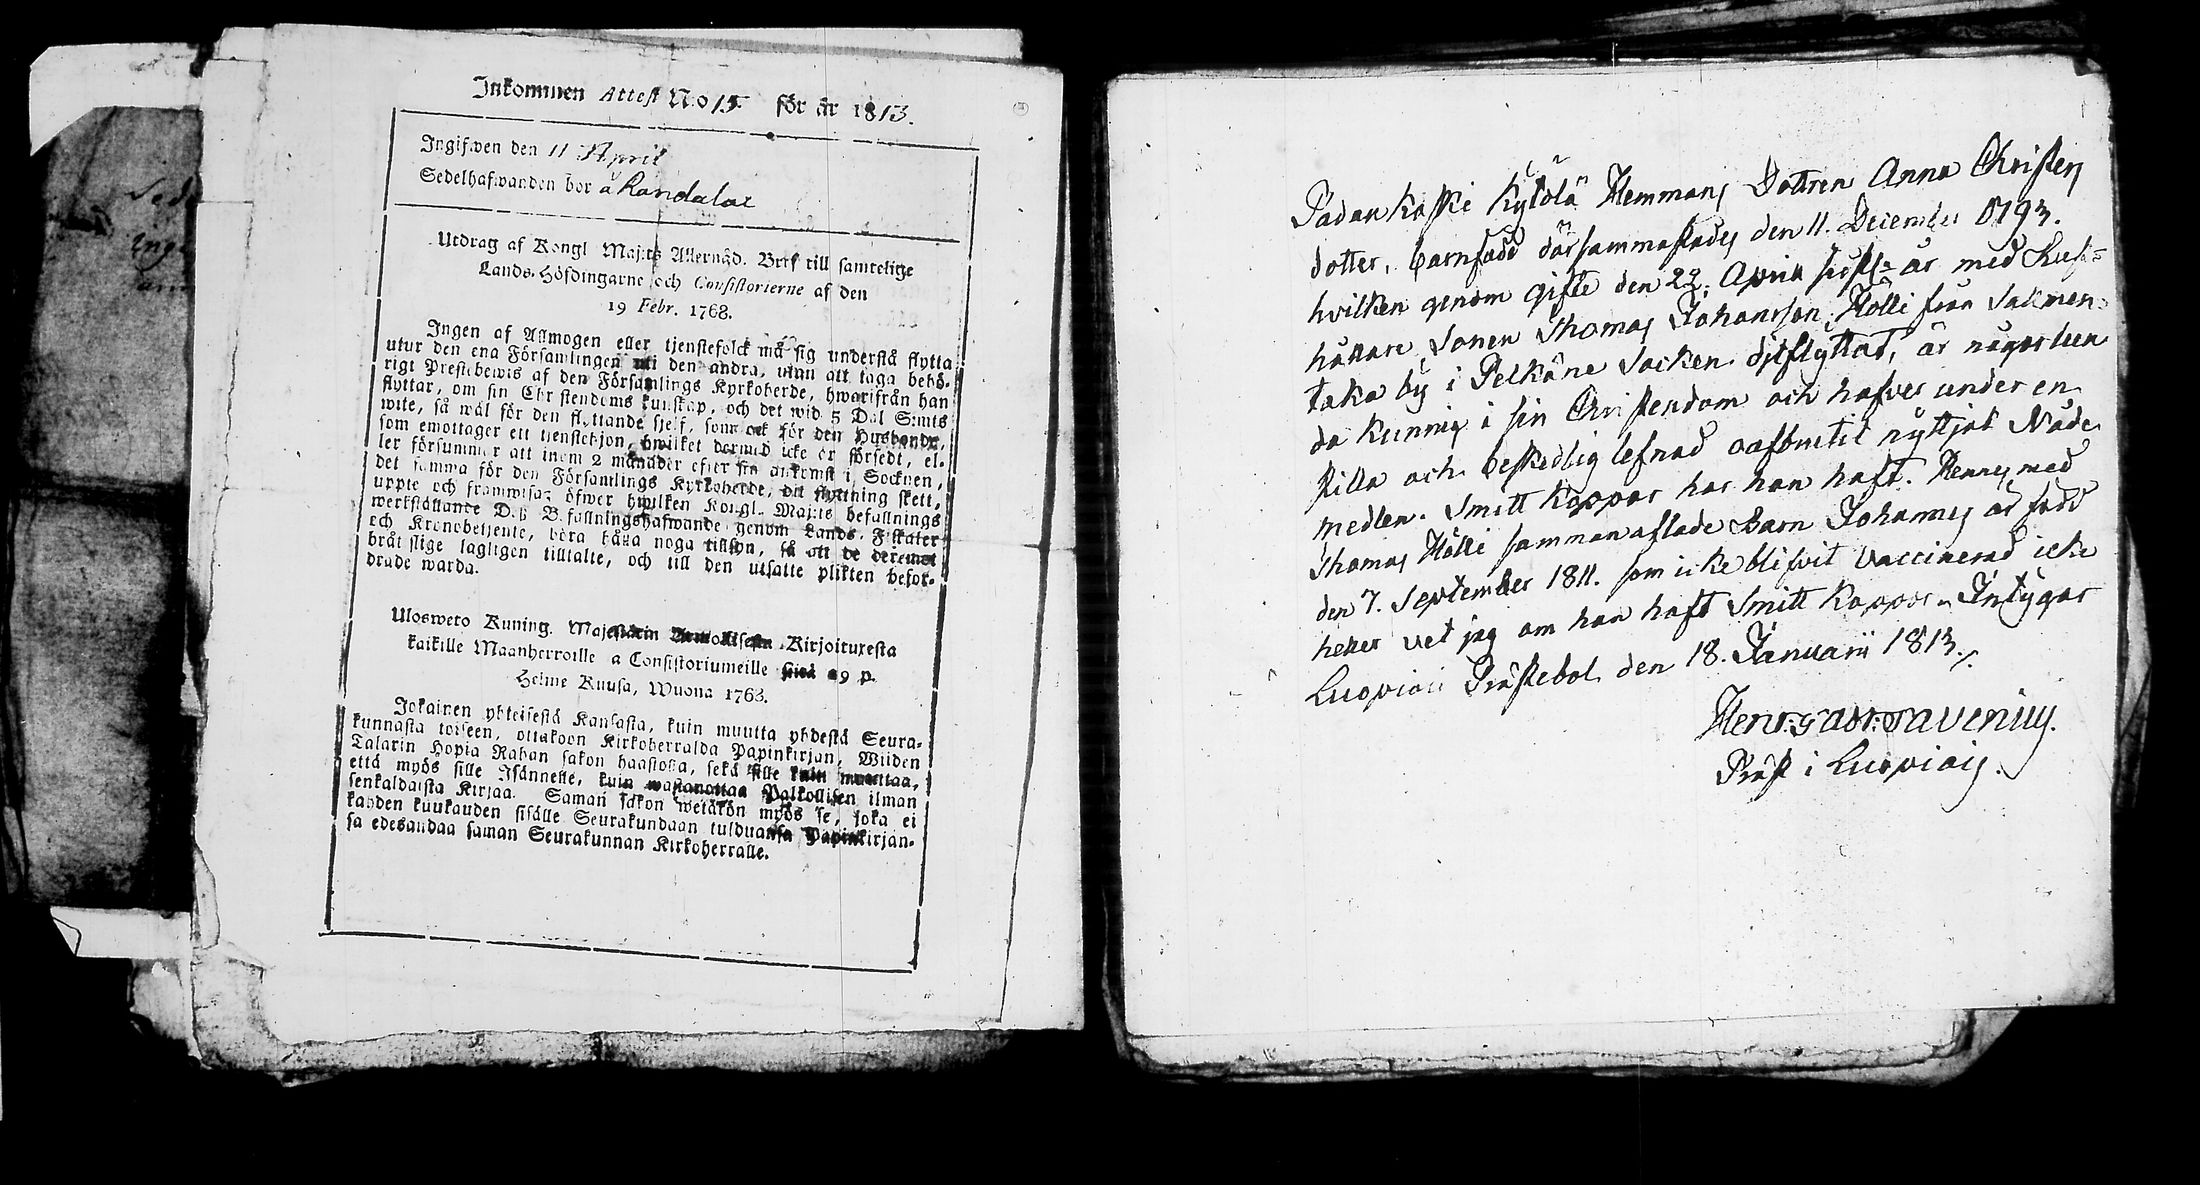 Inkommen Attest No 15 för år 1813.
Ingifwen den 11 April
Sedelhafwanden bor å Randalax
Utdrag af Kongl Maj:ts Allernåd. Bref till samtelige
Lands-Höfdingarne och Consistorierne af den
19 Febr. 1768.
Ingen af Allmogen eller tjenstefolck må sig understå flytta
utur den ena Församlingen uti den andra, utan att taga behö-
rigt Prestebewis af den Församlings Kyrkoherde, hwarifrån han
flyttar, om sin Christendoms kunskap, och det wid 5 Dal S:mts
wite, så wäl för den flyttande sjelf, som ock för den Husbonde,
som emottager ett tjenstehjon, hwilket dermed icke är försedt, el-
ler försummar att inom 2 månader efter sin ankomst i Socknen,
det samma för den Församlings Kyrkoherde, dit flyttning skett,
uppte och framwisa; öfwer hwilken Kongl. Maj:ts befallnings
werkställande D.ß Befallningshafwande genom Lands-Fiskaler
och Kronobetjente, böra hålla noga tillsyn, så att de deremot
brätslige lagligen tilltalte, och till den utsatte plikten befor-
drade warda.
Ulosweto Kuning. Majestätin Armollisesta Kirjoituxesta
kaikille Maanherroille a Consistoriumeille siitä 19 p.
Helme Kuusa, Wuona 1768.
Jokainen yhteisestä Kansasta, kuin muutta yhdestä Seura-
kunnasta toiseen, ottakoon Kirkoherralda Papinkirjan, Wiiden
Talarin Hopia Rahan sakon haastolla, sekä sille kuin muuttaa,
että myös sille Isännelle, kuin wastanottaa Palkollisen ilman
senkaldaista Kirjaa. Saman sakon wetäkön myös se, joka ei
kahden kuukauden sisälle Seurakundaan tulduansa Papinkirjan-
sa edesandaa saman Seurakunnan Kirkoherralle.
Padankoski Kytölä Hemmans Dottren Anna Christers
dotter, barnfödd därsammastades den 11. December 1793.
hvilken genom gifte den 22. April sistl. år med Rust=
hållare Sonen Thomas Johansson Hölli från Salmen
taka by i Pelkäne Socken ditflyttat, är någorlun
da kunnig i sin Christendom och hafver under en
stilla och beskedlig lefnad oafbrutit nyttjat Nåde
medlen. Smitt Koppor har hon haft. Hennes med
Thomas Hölli sammanaflade Barn Johannes är född
den 7. September 1811. som icke blifvit vaccinerad icke
heller vet jag om han haft Smitt Koppor. Intygar
Luopiois Prästebol den 18. Januarii 1813.
Henr: Gabr: Tavenius.
Präst i Luopiois.